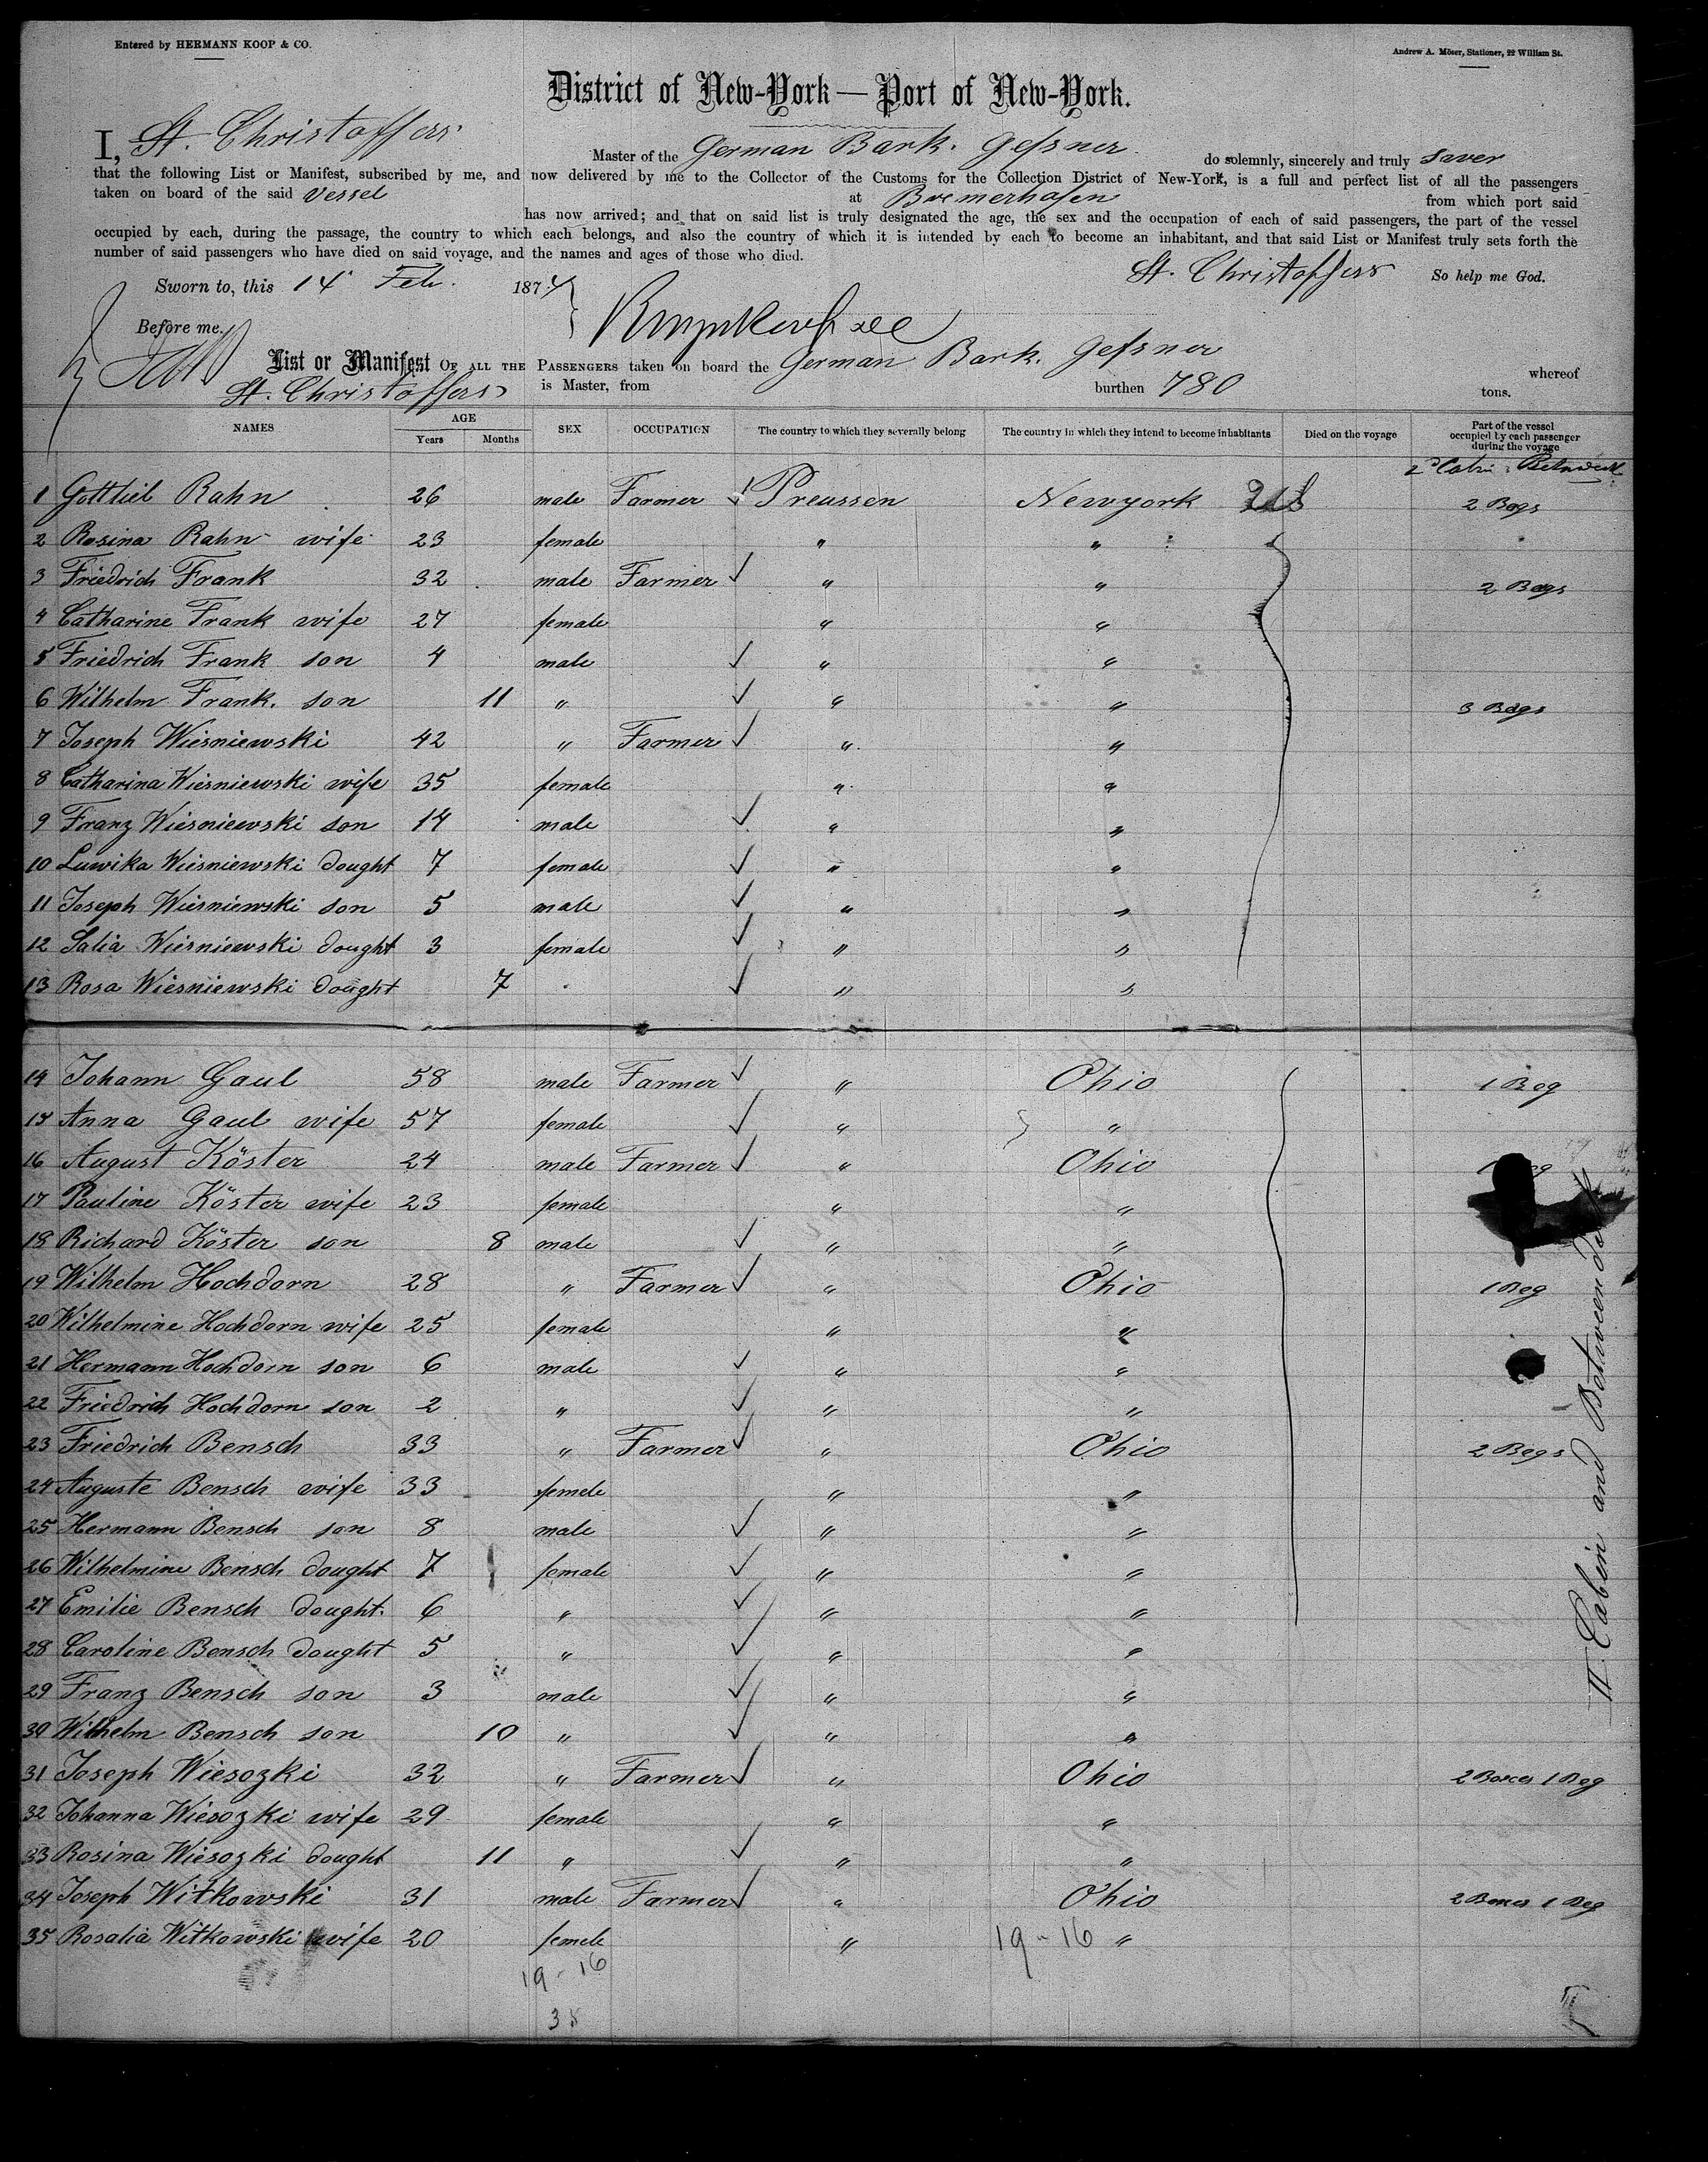 Entered by HERMANN KOOP & CO.
Andrew A. Möser, Stationer, 22 William St.
District of New-York — Port of New-York.
I, St. Christoffers Master of the German Bark. Geßner do solemnly, sincerely and truly
that the following List or Manifest, subscribed by me, and now delivered by me to the Collector of the Customs for the Collection District of New-York, is a full and perfect list of all the passengers
taken on board of the said Vessel at Bremerhafen from which port said
has now arrived; and that on said list is truly designated the age, the sex and the occupation of each of said passengers, the part of the vessel
occupied by each, during the passage, the country to which each belongs, and also the country of which it is intended by each to become an inhabitant, and that said List or Manifest truly sets forth the
number of said passengers who have died on said voyage, and the names and ages of those who died.
St. Christoffers So help me God.
Sworn to, this 14 Feb. 1874
Before me.
List or Manifest OF ALL THE PASSENGERS taken on board the German Bark. Geßner whereof
St. Christoffers is Master, from burthen 780 tons.
NAMES AGE Years Months SEX OCCUPATION The country to which they severally belong The country in which they intend to become inhabitants Died on the voyage Part of the vessel occupied by each passenger during the voyage
1 Gottlieb Rahn 26 male Farmer Preussen Newyork 2 Bags
2 Rosina Rahn wife 23 female " "
3 Friedrich Frank 32 male Farmer " " 2 Bags
4 Catharine Frank wife 27 female " "
5 Friedrich Frank son 4 male " "
6 Wilhelm Frank. son 11 " " " 3 Bags
7 Joseph Wiesniewski 42 " Farmer " "
8 Catharina Wiesniewski wife 35 female " "
9 Franz Wiesniewski son 14 male " "
10 Luwika Wiesniewski dought 7 female " "
11 Joseph Wiesniewski son 5 male " "
12 Salia Wiesniewski dought 3 female " "
13 Rosa Wiesniewski dought 7 " "
14 Johann Gaul 58 male Farmer " Ohio 1 Bag
15 Anna Gaul wife 57 female " "
16 August Köster 24 male Farmer " Ohio
17 Pauline Köster wife 23 female " "
18 Richard Köster son 8 male " "
19 Wilhelm Hochdorn 28 " Farmer " Ohio 1 Bag
20 Wilhelmine Hochdorn wife 25 female " "
21 Hermann Hochdorn son 6 male " "
22 Friedrich Hochdorn son 2 " " "
23 Friedrich Bensch 33 " Farmer " Ohio 2 Bags
24 Auguste Bensch wife 33 female " "
25 Hermann Bensch son 8 male " "
26 Wilhelmine Bensch dought 7 female " "
27 Emilie Bensch dought. 6 " " "
28 Caroline Bensch dought 5 " " "
29 Franz Bensch son 3 male " "
30 Wilhelm Bensch son 10 " " "
31 Joseph Wiesozki 32 " Farmer " Ohio 2 Boxes 1 Bag
32 Johanna Wiesozki wife 29 female " "
33 Rosina Wiesozki dought 11 " " "
34 Joseph Witkowski 31 male Farmer " Ohio 2 Boxes 1 Bag
35 Rosalia Witkowski wife 20 female " 19-16 "
19-16
35
II. Cabin and Between deck